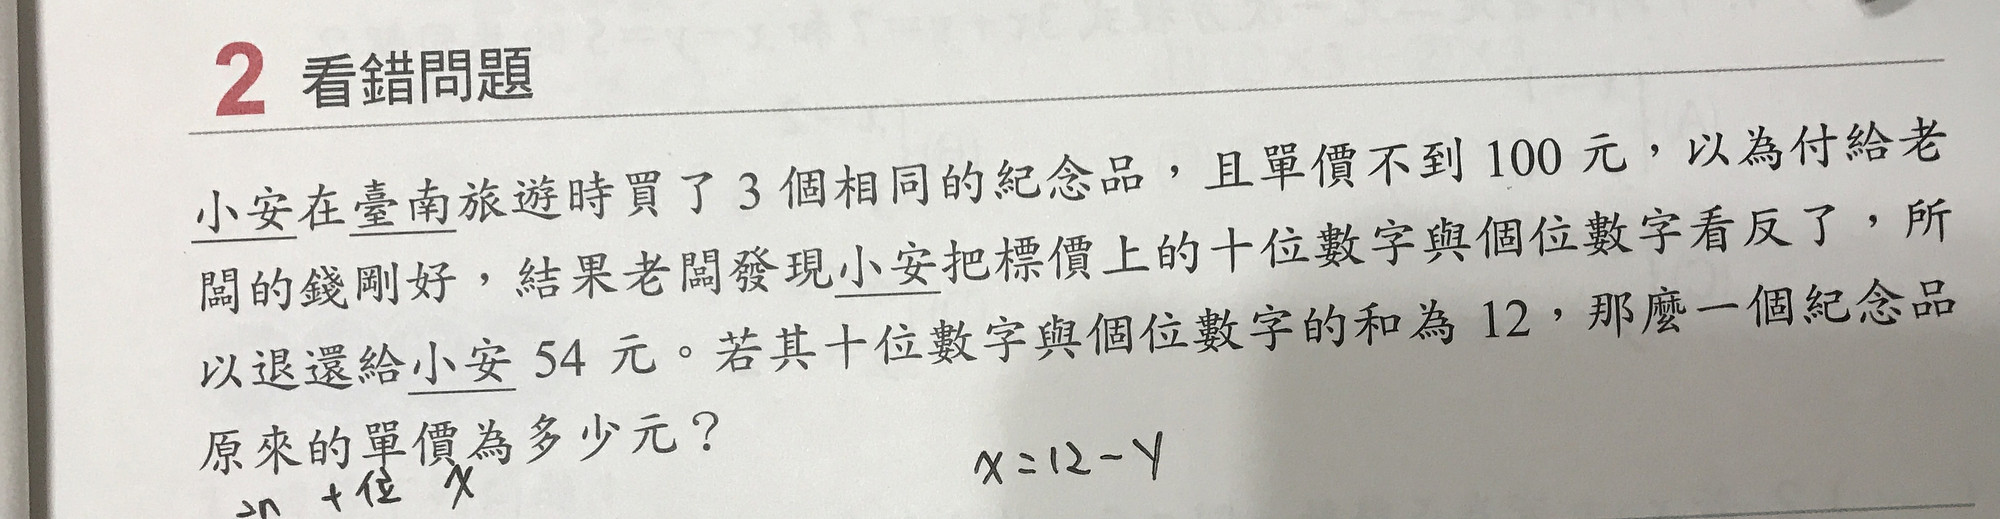 2 看錯問題
小安在臺南旅遊時買了 3 個相同的紀念品，且單價不到 100 元，以為付給老
闆的錢剛好，結果老闆發現小安把標價上的十位數字與個位數字看反了，所
以退還給小安 54 元。若其十位數字與個位數字的和為 12，那麼一個紀念品
原來的單價為多少元？
x=12-y
十位 x